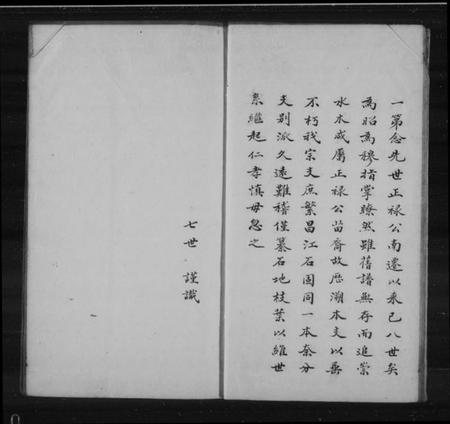 一第念先世正祿公南遷以來已八世矣
為昭為穆指掌瞭然雖舊譜無存而追崇
水木咸屬正祿公苗裔故歷溯本支以垂
不朽我宗支庶繁昌江石固同一本奈分
支別派久遠難稽僅纂石地枝葉以維世
系繼起仁孝慎毋忽之
七世 謹識